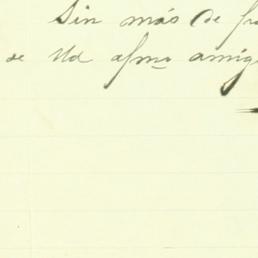 Sin más de
de Ud afmo amigo